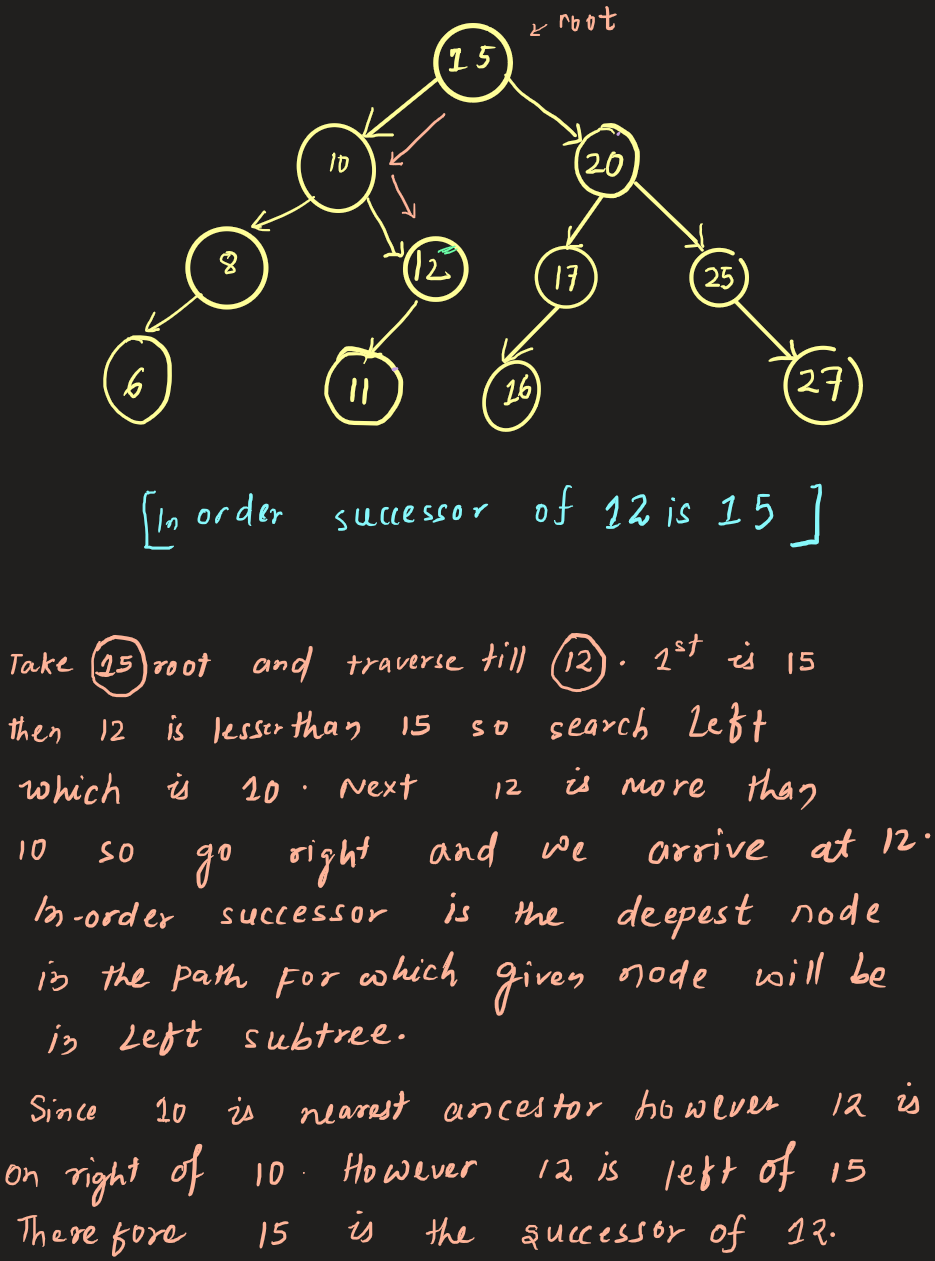 ← root
15
10
20
8
12
17
25
6
11
16
27
[In order successor of 12 is 15]
Take 15 root and traverse till 12. 1st is 15
then 12 is lesser than 15 so search Left
which is 10. Next 12 is more than
10 so go right and we arrive at 12.
In-order successor is the deepest node
in the path for which given node will be
in Left subtree.
Since 10 is nearest ancestor however 12 is
on right of 10. However 12 is left of 15
Therefore 15 is the successor of 12.